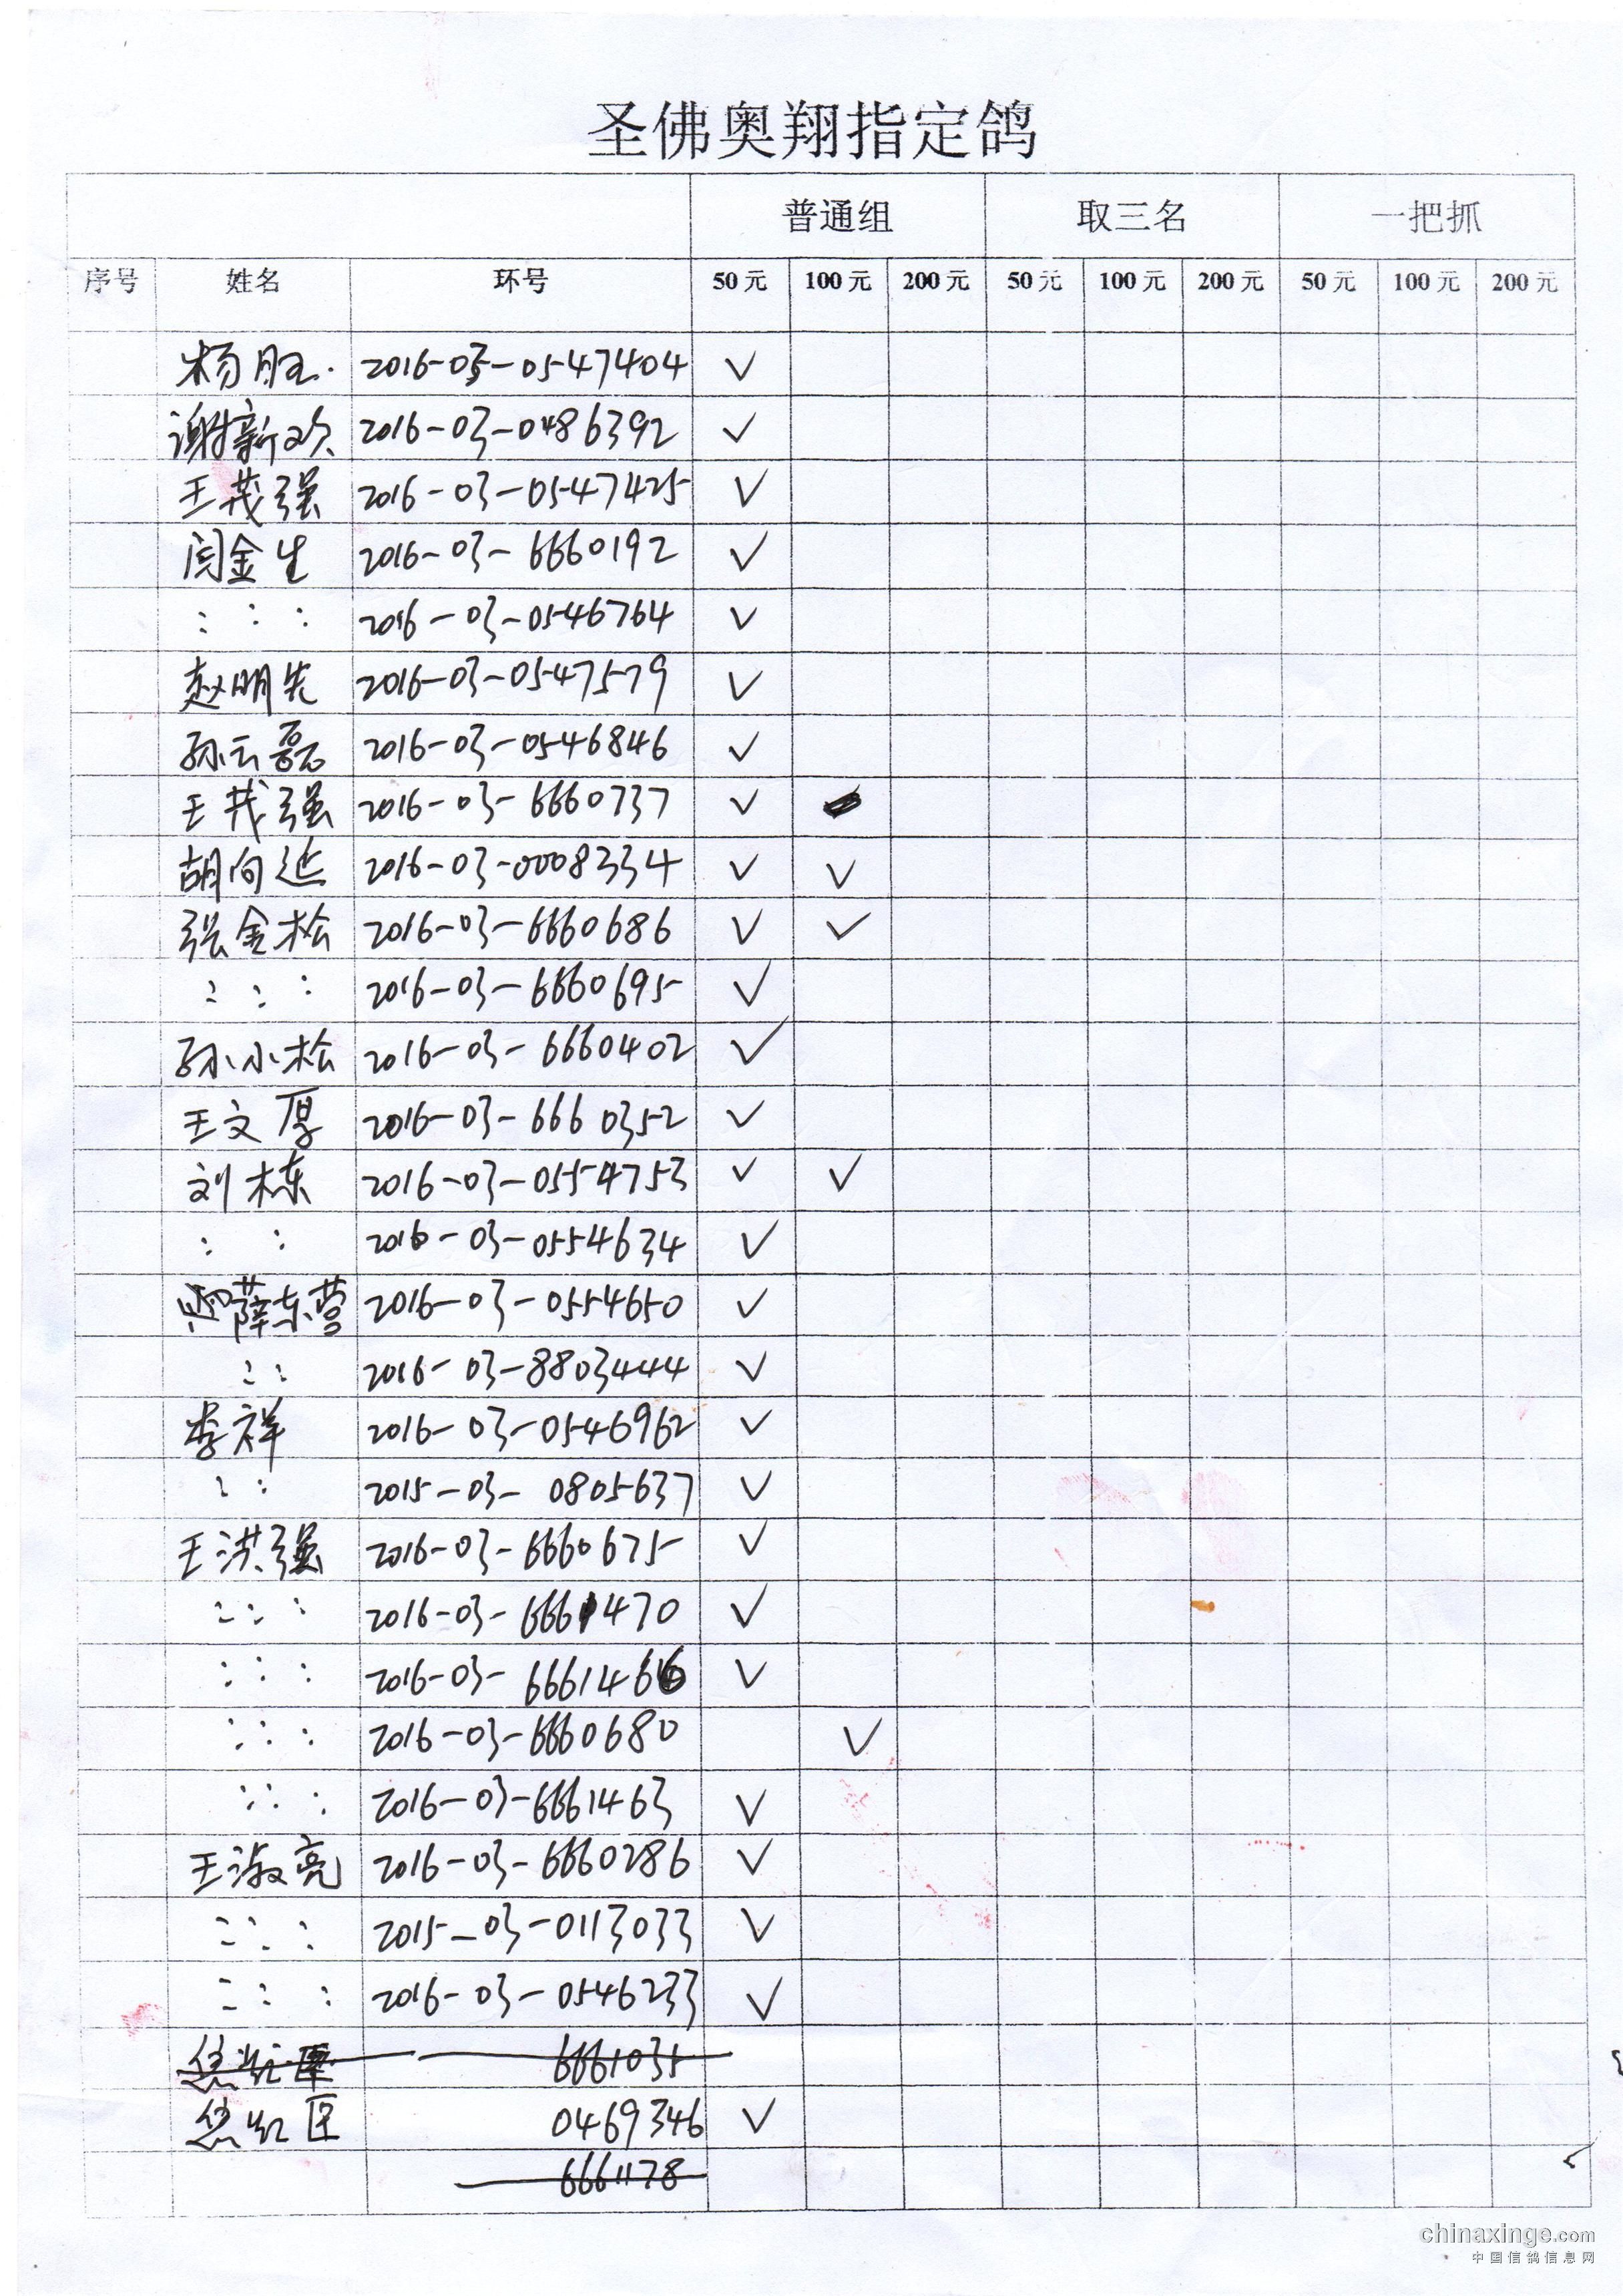 圣佛奥翔指定鸽
普通组 取三名 一把抓
序号 姓名 环号 50元 100元 200元 50元 100元 200元 50元 100元 200元
杨旺 2016-03-0547404 √
谢新欢 2016-03-0486392 √
王茂强 2016-03-0547425 √
闫金生 2016-03-6660192 √
: : : 2016-03-0546764 √
赵明先 2016-03-0547579 √
孙云磊 2016-03-0546846 √
王茂强 2016-03-6660737 √
胡向延 2016-03-0008334 √ √
张金松 2016-03-6660686 √ √
: : : 2016-03-6660695 √
孙小松 2016-03-6660402 √
王文厚 2016-03-6660352 √
刘栋 2016-03-0554753 √ √
: : 2016-03-0554634 √
薛东营 2016-03-0554650 √
: : 2016-03-8803444 √
李祥 2016-03-0546962 √
: : 2015-03-0805637 √
王洪强 2016-03-6660675 √
: : : 2016-03-6661470 √
: : : 2016-03-6661466 √
: : : 2016-03-6660680 √
: : : 2016-03-6661463 √
王淑亮 2016-03-6660286 √
: : : 2015-03-0113033 √
: : : 2016-03-0546233 √
6661035
0469346 √
6661178
chinaxinge.com
中国信鸽信息网